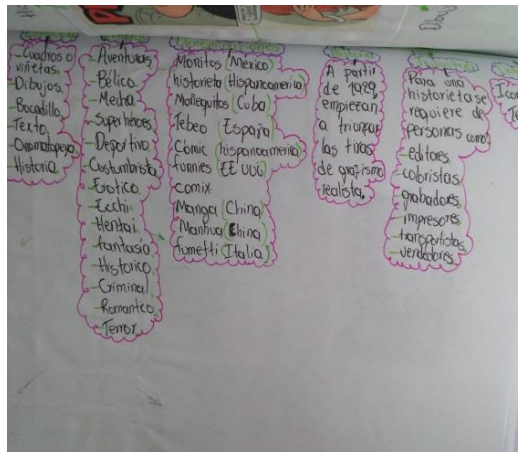 -Cuadros o
viñetas.
-Dibujos.
-Bocadillo.
-Texto.
-Onomatopeya
-Historia.
-Aventuras.
-Bélico.
-Mecha.
-Superhéroes.
-Deportivo.
-Costumbrista
-Erótico.
-Ecchi
-Hentai
-fantasía.
-Historico.
-Criminal.
-Romantco.
-Terror.
Monitos (México)
historieta (Hispanoamerica)
Moñequitos (Cuba)
Tebeo (España)
Cómic (hispanoamerica)
funnies (EE UUU)
comix
Manga (China)
Manhua (China)
fumetti (Italia)
A partir
de 1929
empiezan
a triunfar
las tiras
de grafismo
realista.
Para una
historieta se
requiere de
personas como:
-editores.
-coloristas.
-grabadores.
-impresores.
-transportistas.
-vendedores.